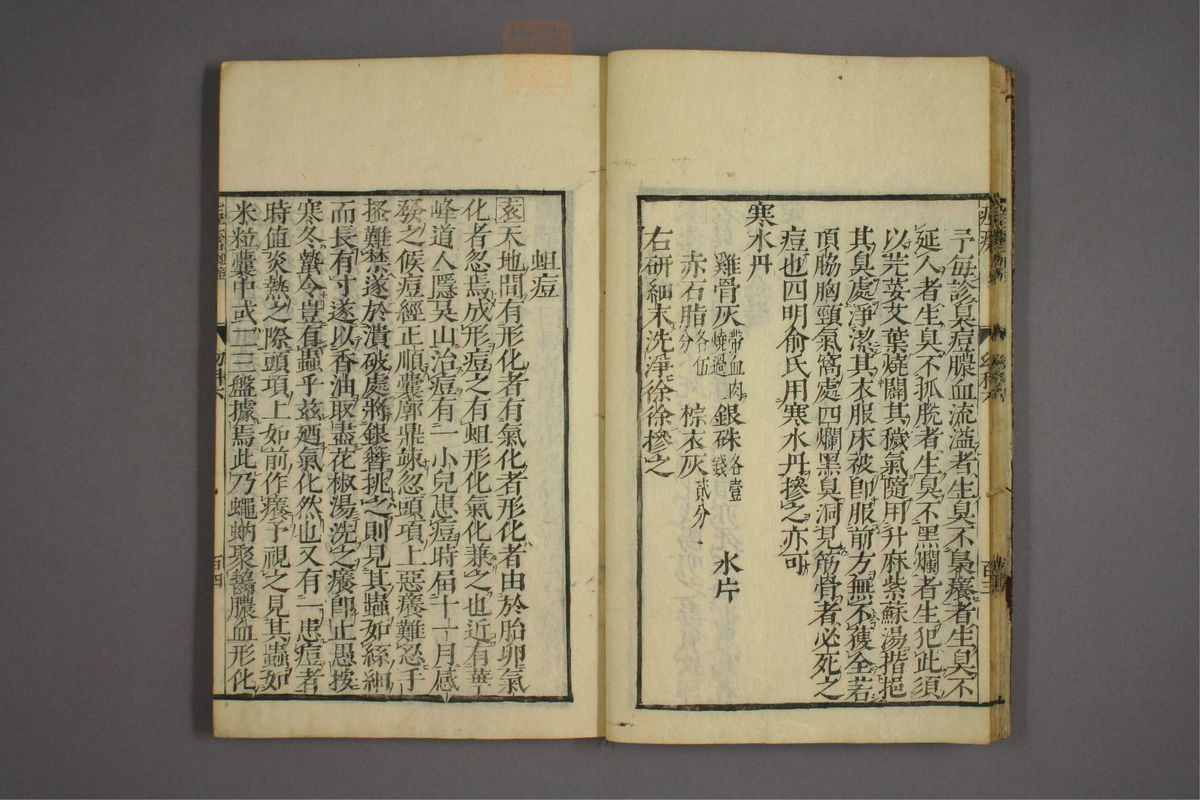 予每診臭痘膿血流溢者生臭不臭癢者生臭不
延入者生臭不孤脫者生臭不黑爛者生犯此須
以芫荽艾葉燒闢其穢氣隨用升麻紫蘇湯揩挹
其臭處淨潔其衣服床被卽服前方無不獲全若
頂脇胸頸氣窩處四爛黑臭洞見筋骨者必死之
痘也四明俞氏用寒水丹摻之亦可
寒水丹
雞骨灰帶血肉燒過 銀硃各壹錢 水片
赤石脂各伍分 棕衣灰貳分
右研細末洗淨徐徐摻之
百三
蛆痘
袁天地間有形化者有氣化者形化者由於胎卵氣
化者忽焉成形痘之有蛆形化氣化兼之也近有華
峰道人隱吳山治痘有一小兒患痘時屆十一月感
發之候痘經正順囊廓鼎竦忽頭項上惡癢難忍手
搔難禁遂於潰破處將銀簪挑之則見其蟲如絲細
而長有寸遂以香油取盡花椒湯洗之癢卽止愚按
寒冬蟄令豈有蟲乎兹廼氣化然也又有一患痘者
時值炎熱之際頭項上如前作癢予視之見其蟲如
米粒囊中或二三盤據焉此乃蠅蚋聚鷇膿血形化
幼科六
百四